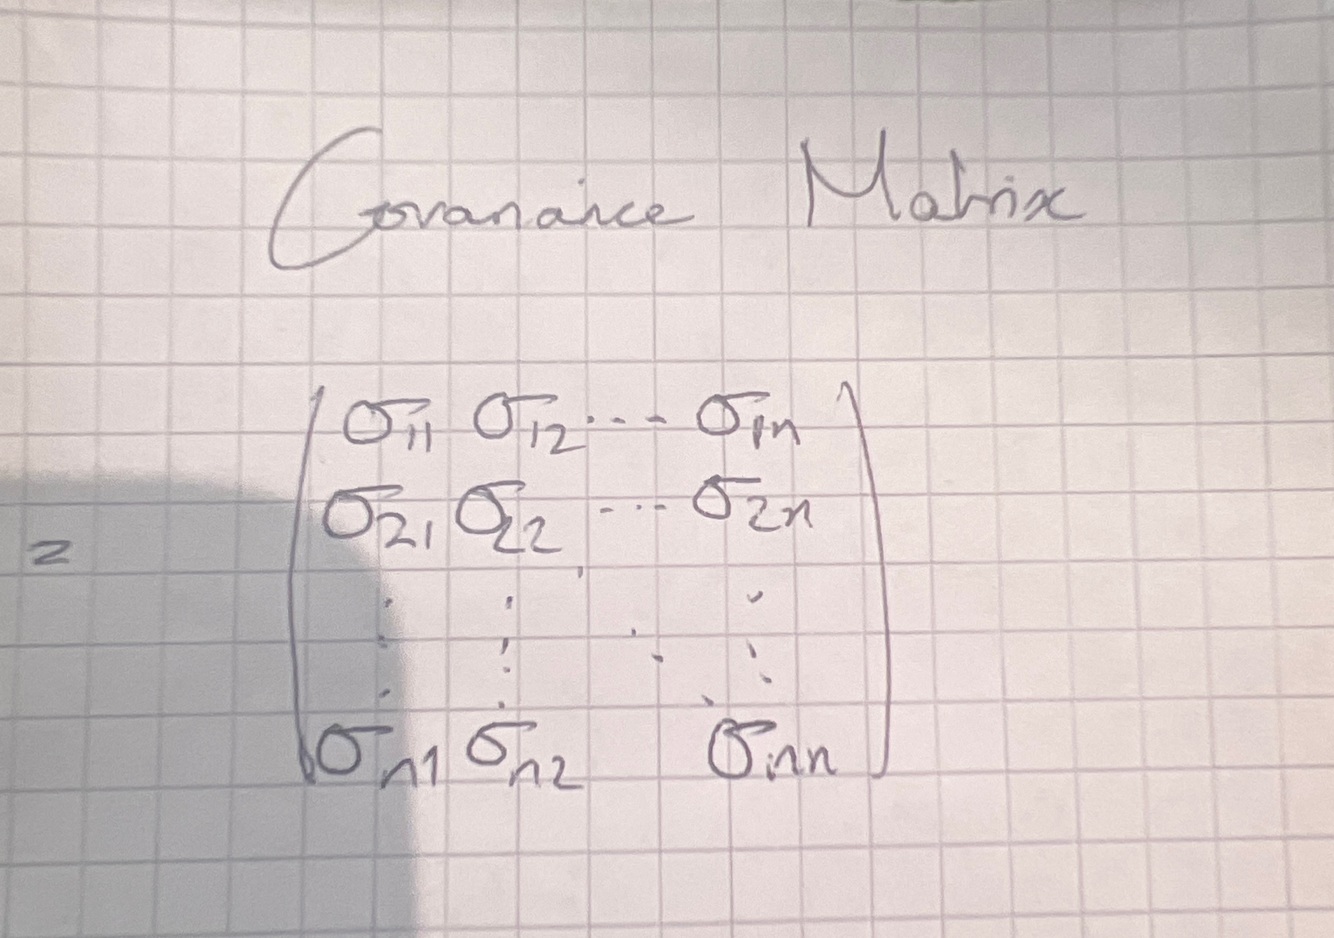 Covariance Matrix
σ11 σ12 ... σ1n
σ21 σ22 ... σ2n
=
⋮ ⋮ ⋱ ⋮
σn1 σn2 σnn